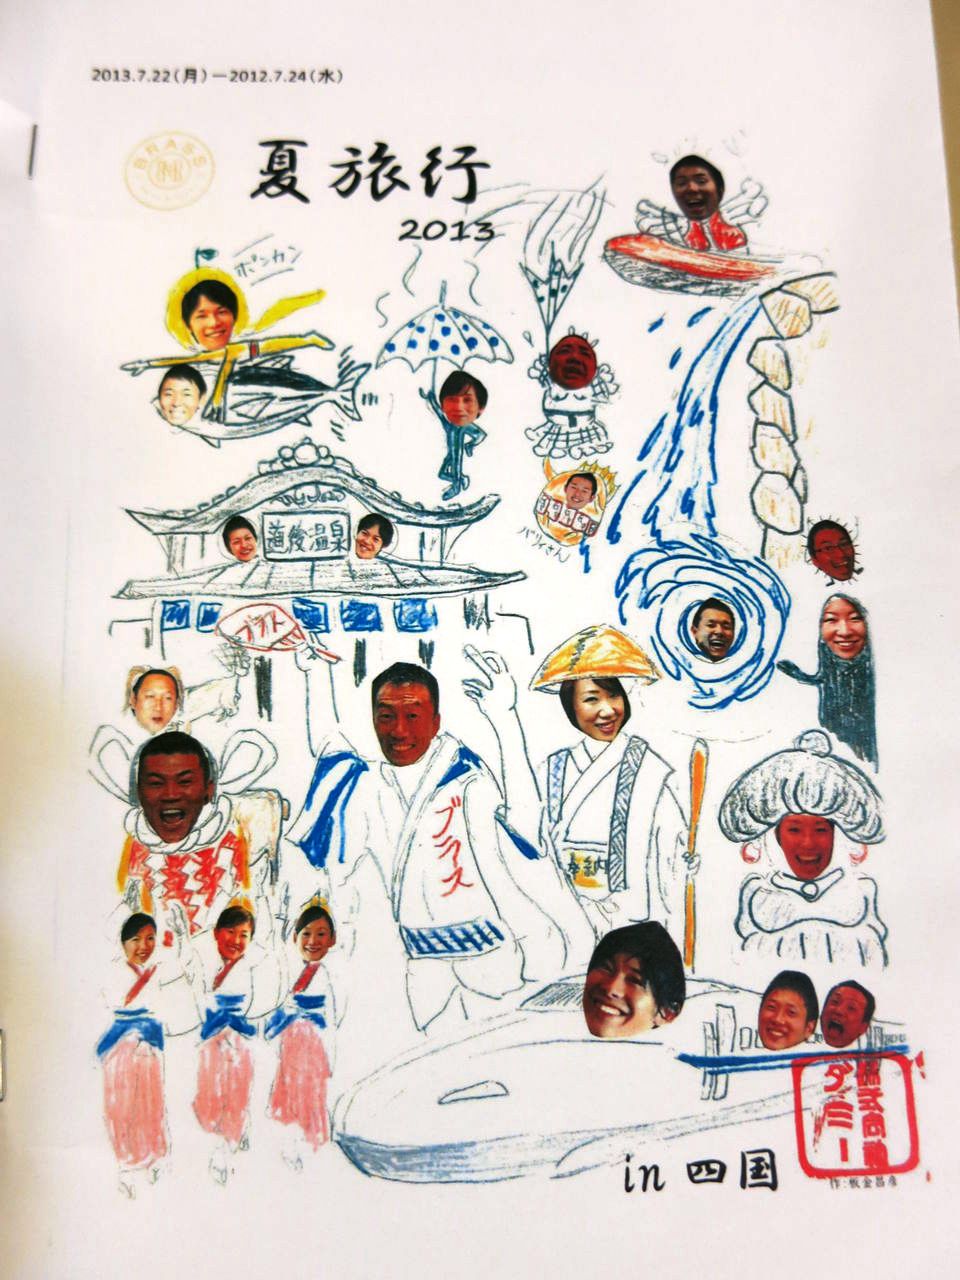 2013.7.22(月)ー2012.7.24(水)
BRASS
夏旅行
2013
ポンカン
道後温泉
バリィさん
ブラス
ブラス
奉納
in 四国
株式会社
ダミー
作:板金昌彦